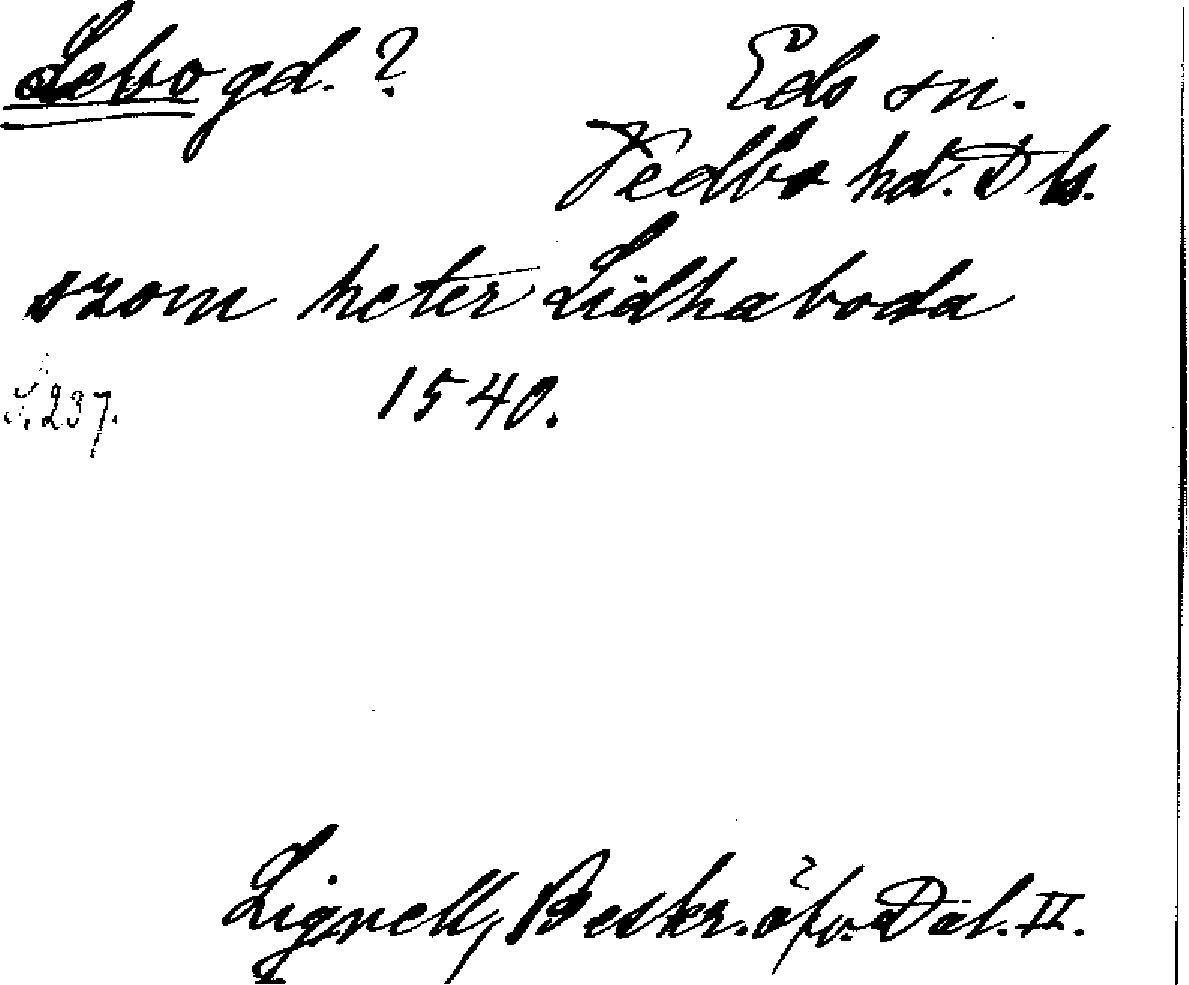 Lebo gd. ?
Eds sn.
Vedbo hd. D ls.
szom heter Lidhaboda
S. 237.
1540.
Lignell, Beskr. öfv. Dal. II.